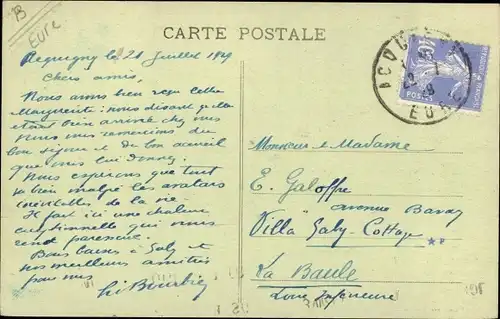 Eure
CARTE POSTALE
Acquigny le 21 Juillet 1929
Chers amis,
Nous avons bien reçu Cette
Marguerite : nous disant qu'elle
était bien arrivée chez vous
Nous vous remercions du
bon séjour et du bon accueil
que vous lui donnez.
Nous espérons que tout
va bien malgré les avatars
inévitables de la vie.
Il fait ici une chaleur
qui nous
rend paresseux.
Bons baisers à Gaby et
nos meilleurs amitiés
pour vous
ACQUIGNY
EURE
POSTES
Monsieur & Madame
E. Galoffre
avenue
Villa Gaby-Cottage
La Baule
Loire Inférieure